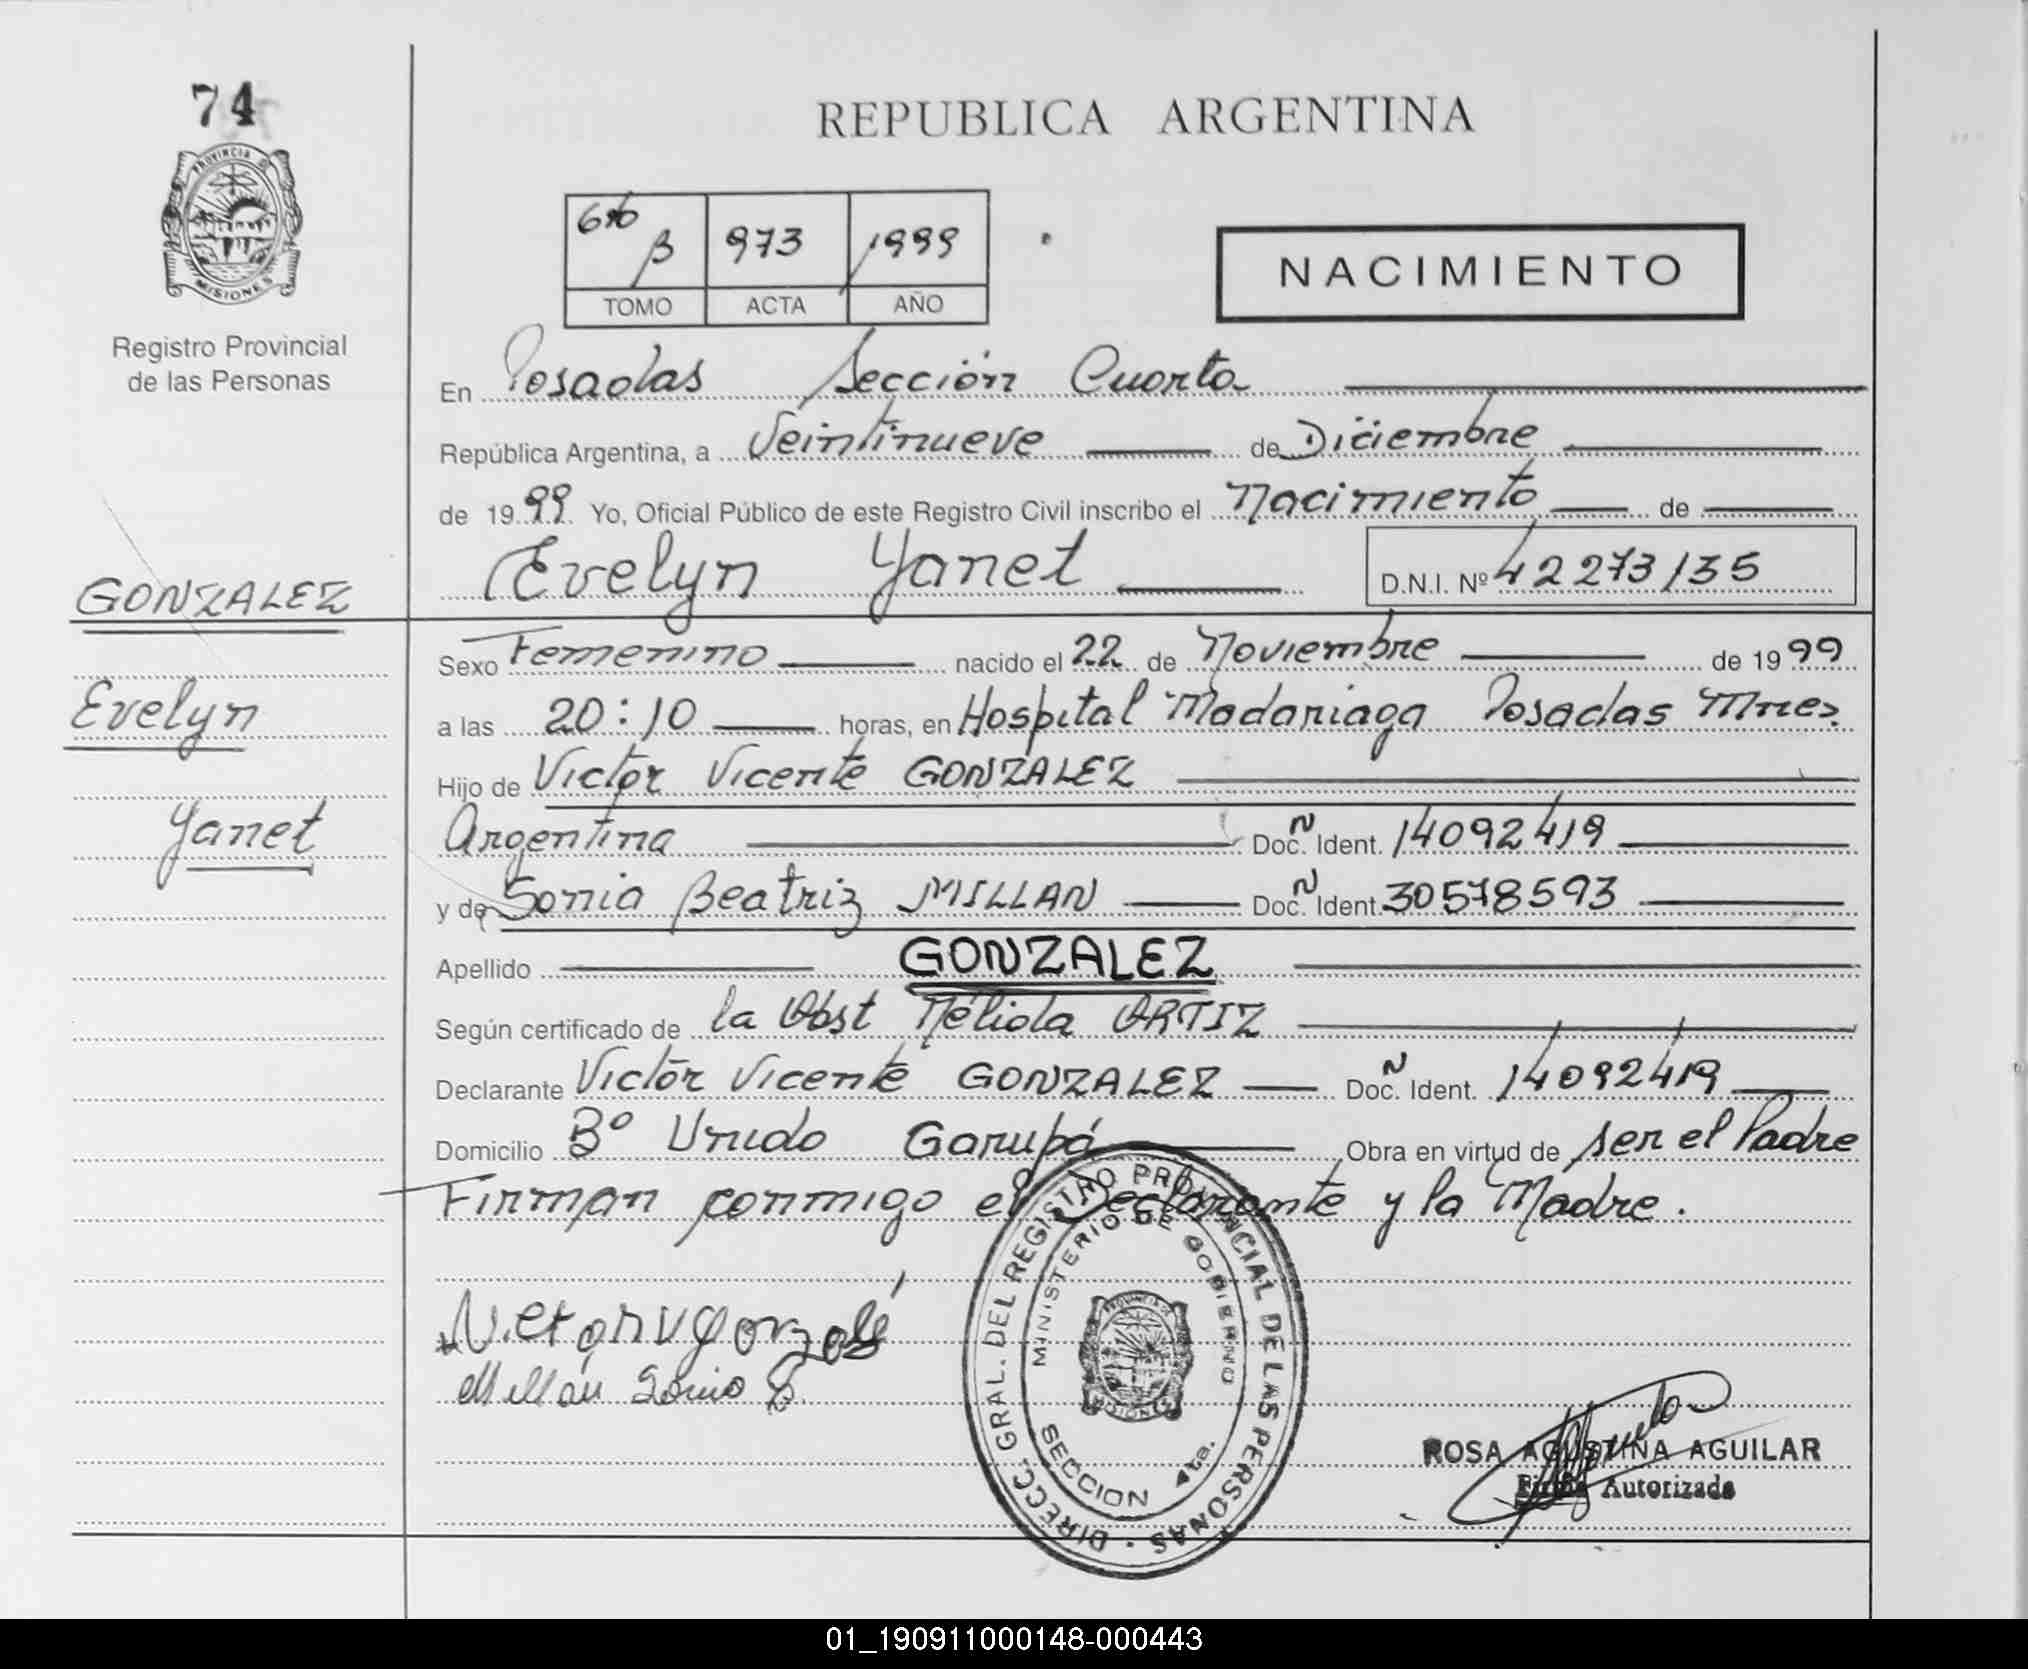 74
PROVINCIA DE
MISIONES
Registro Provincial
de las Personas
GONZALEZ
Evelyn
Yanet
REPUBLICA ARGENTINA
6to B 973 1999
TOMO ACTA AÑO
NACIMIENTO
En Posadas Sección Cuarta
República Argentina, a Veintinueve de Diciembre
de 1999 Yo, Oficial Público de este Registro Civil inscribo el Nacimiento de
Evelyn Yanet D.N.I. Nº 42273135
Sexo Femenino nacido el 22 de Noviembre de 1999
a las 20:10 horas, en Hospital Madariaga Posadas Mnes.
Hijo de Victor Vicente GONZALEZ
Argentina Doc. N Ident. 14092419
y de Sonia Beatriz MILLAN Doc. N Ident. 30578593
Apellido GONZALEZ
Según certificado de la Obst Nélida ORTIZ
Declarante Victor Vicente GONZALEZ Doc. N Ident. 14092419
Domicilio Bº Unido Garupá Obra en virtud de ser el Padre
Firman conmigo el Declarante y la Madre.
Millán Sonia B.
DIRECC. GRAL. DEL REGISTRO PROVINCIAL DE LAS PERSONAS
MINISTERIO DE GOBIERNO
PROVINCIA DE
MISIONES
SECCION 4ta.
ROSA AGUSTINA AGUILAR
Firma Autorizada
01_190911000148-000443